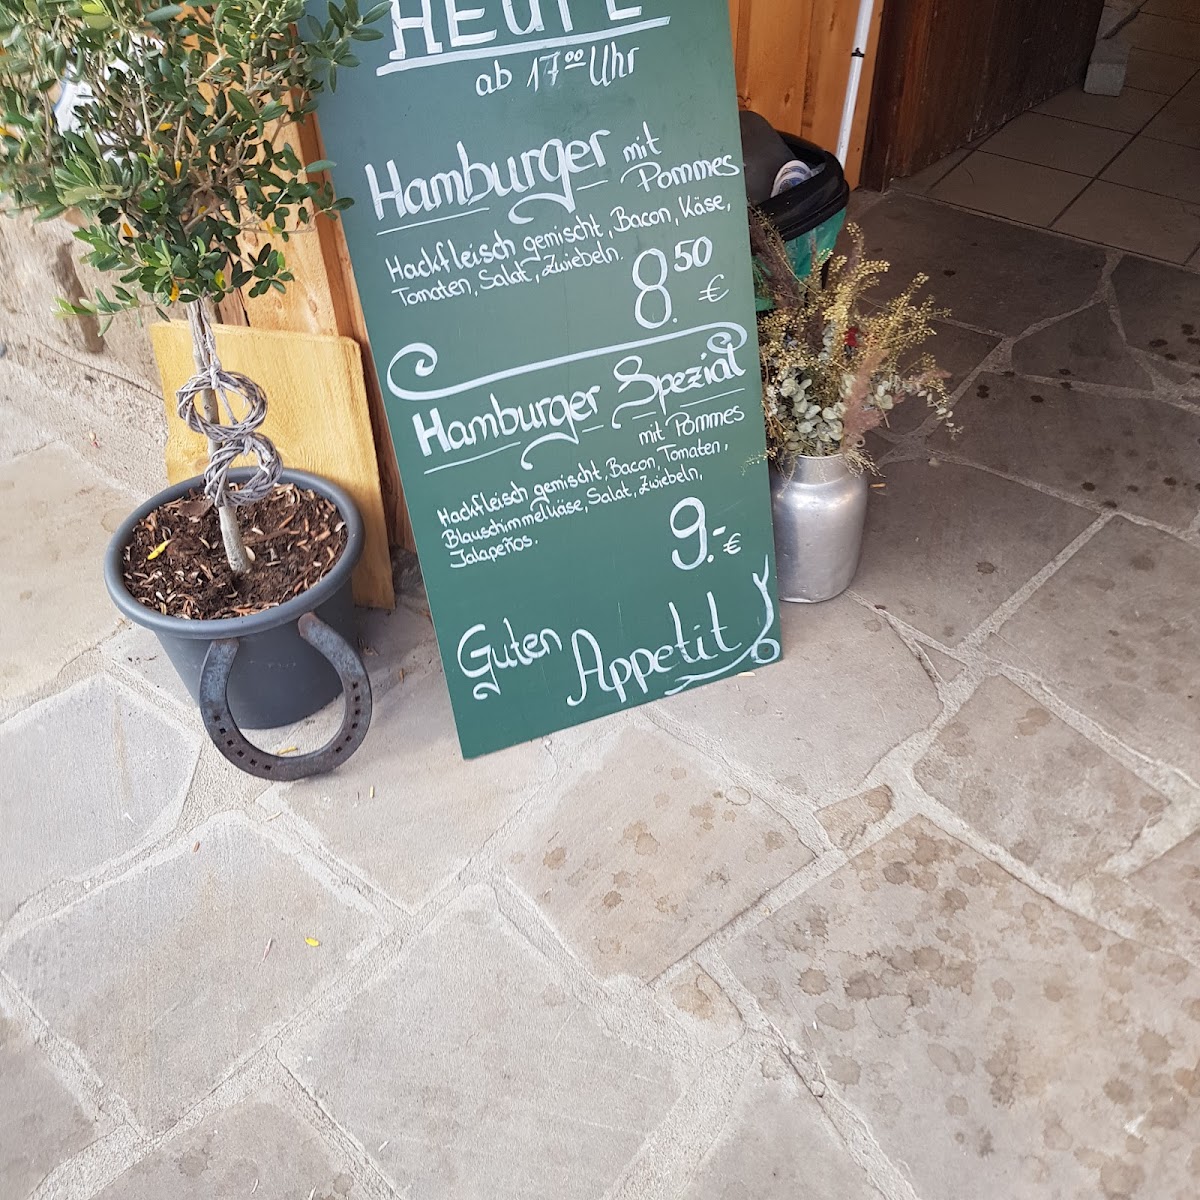 HEUTE
ab 17⁰⁰ Uhr
Hamburger mit
Pommes
Hackfleisch gemischt, Bacon, Käse,
Tomaten, Salat, Zwiebeln.
8.⁵⁰ €
Hamburger Spezial
mit Pommes
Hackfleisch gemischt, Bacon, Tomaten,
Blauschimmelkäse, Salat, Zwiebeln,
Jalapeños.
9.- €
Guten
Appetit